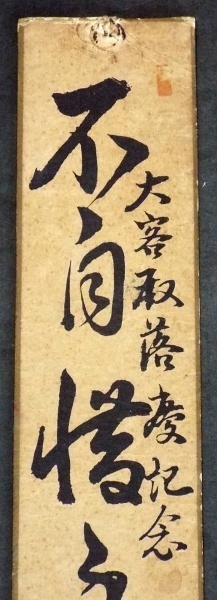 大客殿落慶記念
不自惜